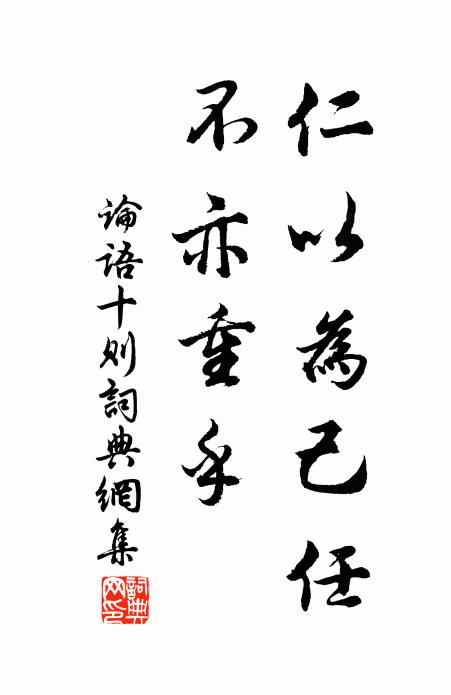 仁以為己任
不亦重乎
論語十則詞典網集
詞典
网印